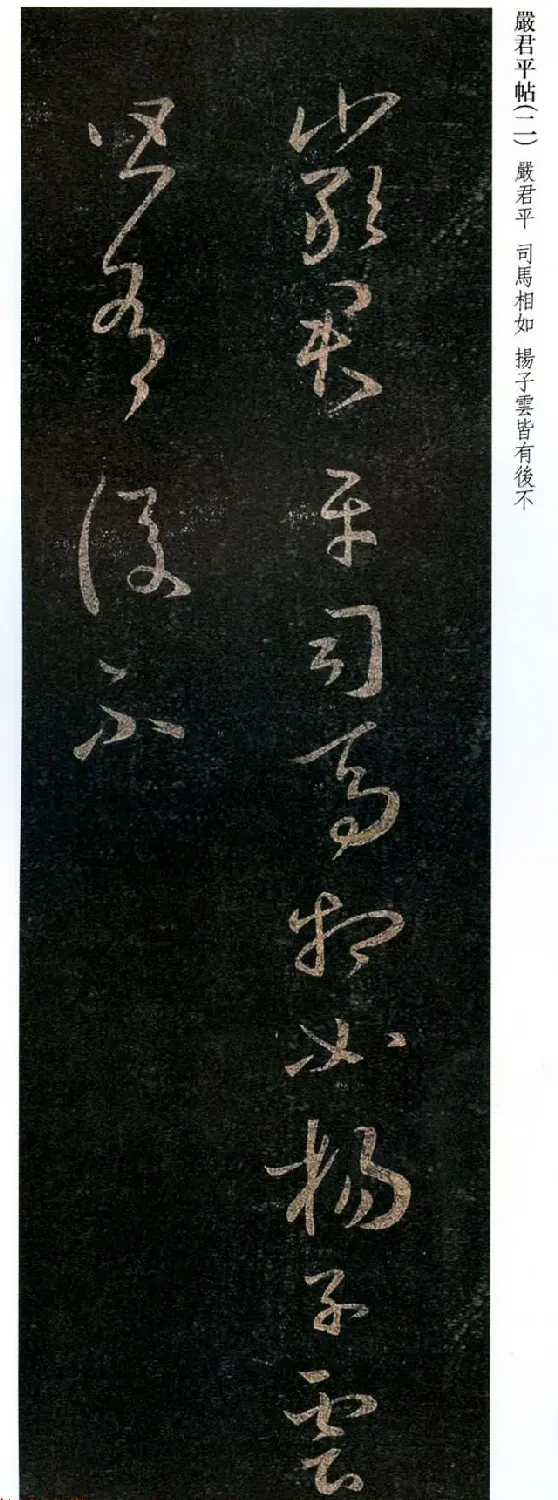 嚴君平帖(二) 嚴君平 司馬相如 揚子雲皆有後不
嚴君平司馬相如楊子雲
皆有後不